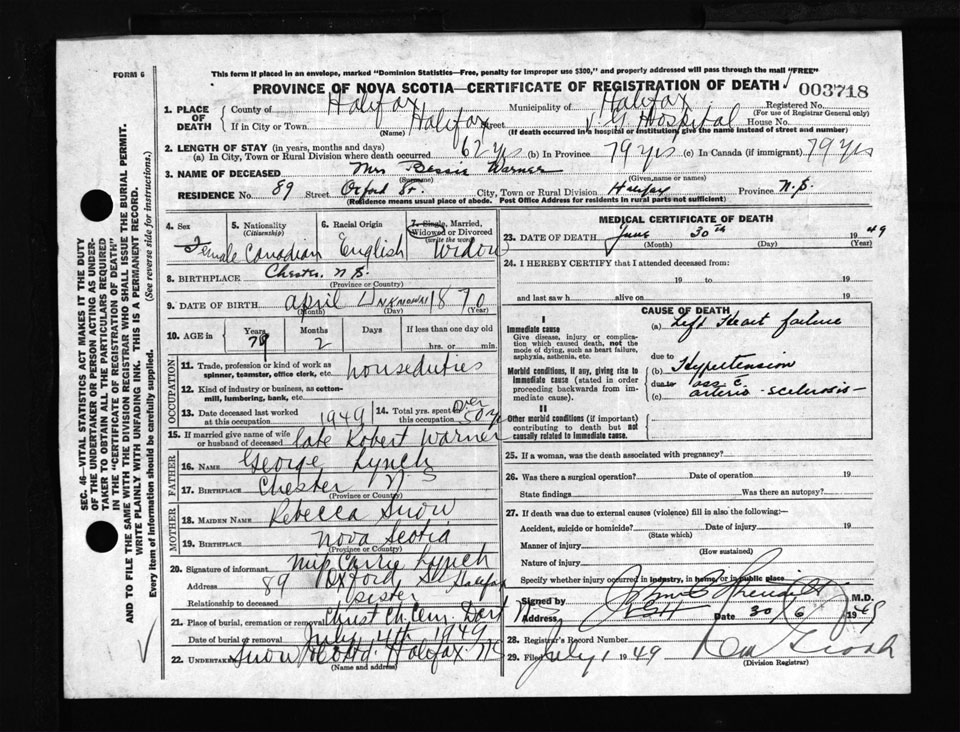 FORM 6
This form if placed in an envelope, marked "Dominion Statistics—Free, penalty for improper use $300," and properly addressed will pass through the mail "FREE"
PROVINCE OF NOVA SCOTIA—CERTIFICATE OF REGISTRATION OF DEATH
003718
1. PLACE OF DEATH County of Halifax Municipality of Halifax Registered No.
(For use of Registrar General only)
If in City or Town Halifax Street V. G. Hospital House No.
(Name) (If death occurred in a hospital or institution, give the name instead of street and number)
2. LENGTH OF STAY (in years, months and days)
(a) In City, Town or Rural Division where death occurred 62 yrs (b) In Province 79 yrs (c) In Canada (if immigrant) 79 yrs
3. NAME OF DECEASED Mrs Bessie Warner
(Surname) (Given name or names)
RESIDENCE No. 89 Street Oxford St. City, Town or Rural Division Halifax Province N.S.
(Residence means usual place of abode. Post Office Address for residents in rural parts not sufficient)
4. Sex Female
5. Nationality (Citizenship) Canadian
6. Racial Origin English
7. Single, Married, Widowed or Divorced (write the word) Widow
8. BIRTHPLACE Chester N.S.
(Province or Country)
9. DATE OF BIRTH April Unknown 1870
(Month) (Day) (Year)
10. AGE in Years 79 Months 2 Days If less than one day old hrs. or min.
OCCUPATION
11. Trade, profession or kind of work as spinner, teamster, office clerk, etc. houseduties
12. Kind of industry or business, as cotton-mill, lumbering, bank, etc.
13. Date deceased last worked at this occupation 1949
14. Total yrs. spent in this occupation Over 50 y
15. If married give name of wife or husband of deceased late Robert Warner
FATHER
16. NAME George Lynch
17. BIRTHPLACE Chester N S
(Province or Country)
MOTHER
18. MAIDEN NAME Rebecca Snow
19. BIRTHPLACE Nova Scotia
(Province or Country)
20. Signature of informant Miss Carrie Lynch
Address 89 Oxford St Halifax
Relationship to deceased Sister
21. Place of burial, cremation or removal Christ Ch. Cem. Dart
Date of burial or removal July 14th 1949
22. UNDERTAKER Snow & Co Ltd. Halifax
(Name and address)
MEDICAL CERTIFICATE OF DEATH
23. DATE OF DEATH June 30th 1949
(Month) (Day) (Year)
24. I HEREBY CERTIFY that I attended deceased from:
19 to 19
and last saw h alive on 19
CAUSE OF DEATH
I
Immediate cause
Give disease, injury or complication which caused death, not the mode of dying, such as heart failure, asphyxia, asthenia, etc.
(a) Left Heart failure
due to
Morbid conditions, if any, giving rise to immediate cause (stated in order proceeding backwards from immediate cause).
(b) Hypertension
due to ass c
(c) arterio-sclerosis
II
Other morbid conditions (if important) contributing to death but not causally related to immediate cause.
25. If a woman, was the death associated with pregnancy?
26. Was there a surgical operation? Date of operation 19
State findings Was there an autopsy?
27. If death was due to external causes (violence) fill in also the following:
Accident, suicide or homicide? Date of injury 19
(State which)
Manner of injury
(How sustained)
Nature of injury
Specify whether injury occurred in industry, in home, or in public place
Signed by M.D.
Address Date 30/6 1949
28. Registrar's Record Number
29. Filed July 1 1949
(Division Registrar)
SEC. 46—VITAL STATISTICS ACT MAKES IT THE DUTY
OF THE UNDERTAKER OR PERSON ACTING AS UNDER-
TAKER TO OBTAIN ALL THE PARTICULARS REQUIRED
IN THE "CERTIFICATE OF REGISTRATION OF DEATH"
AND TO FILE THE SAME WITH THE DIVISION REGISTRAR WHO SHALL ISSUE THE BURIAL PERMIT.
WRITE PLAINLY WITH UNFADING INK. THIS IS A PERMANENT RECORD.
Every item of Information should be carefully supplied. (See reverse side for instructions.)